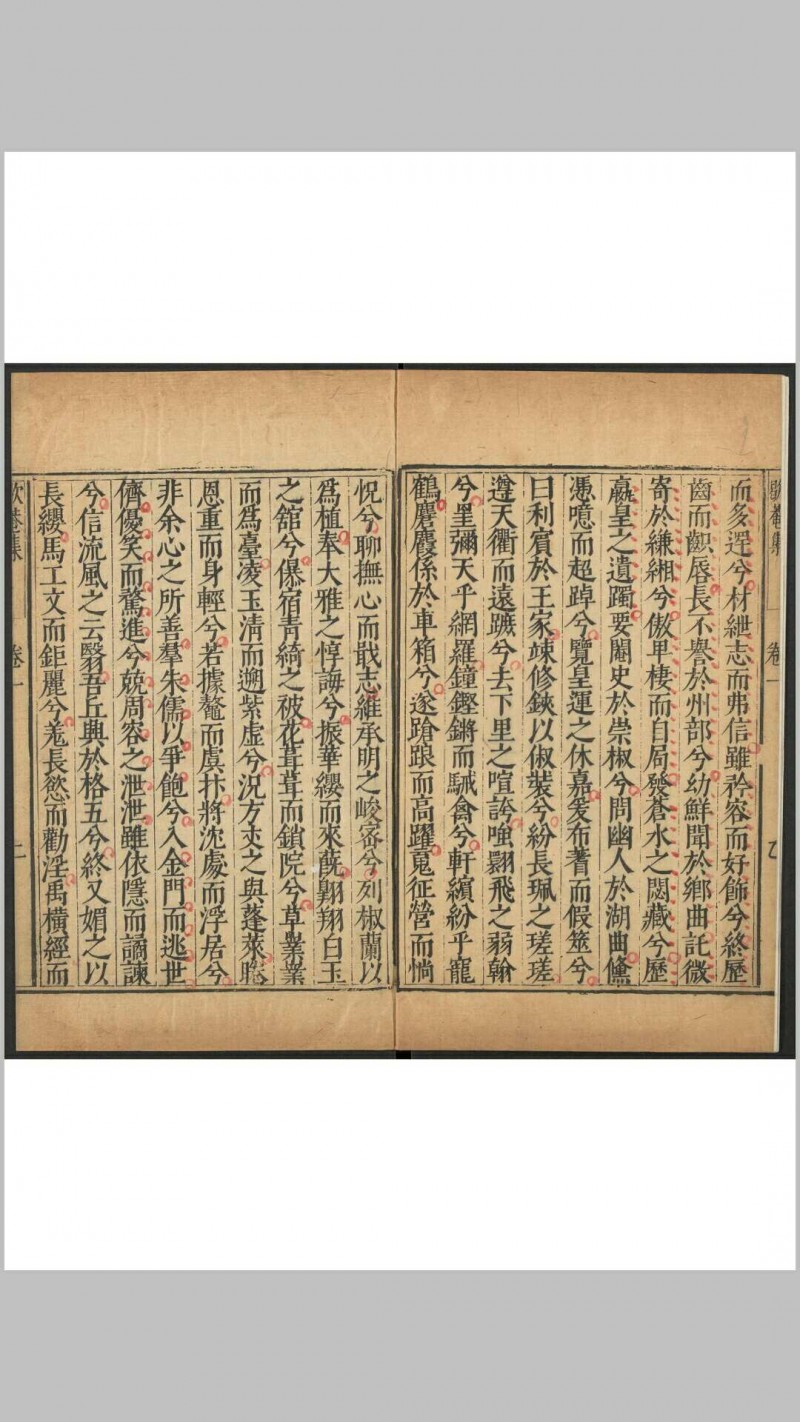 而多逕兮材紲志而弗信雖矜容而好飾兮終歷
齒而齞唇長不譽於州部兮幼鮮聞於鄉曲託微
寄於縑緗兮傲卑棲而自局發蒼水之閟藏兮歷
嬴皇之遺躅要闈史於崇椒兮問幽人於湖曲儵
憑噫而超踔兮覽皇運之休嘉爰布蓍而假筮兮
曰利賓於王家竦修鋏以俶裝兮紛長珮之瑳瑳
遵天衢而遠蹠兮去下里之喧誇嗤翾飛之弱翰
兮里彌天乎網羅鐘鏗鏘而駴禽兮軒繽紛乎寵
鶴麏麚係於車箱兮遂蹌踉而高躍覓征營而惝
怳兮聊撫心而戢志維承明之峻宻兮列椒蘭以
爲植奉大雅之惇誨兮振華纓而來蓻翺翔白玉
之舘兮儤宿青綺之被花茸茸而鎖院兮草業業
而爲臺凌玉清而遡紫虛兮況方𡗝之與蓬萊
恩重而身輕兮若據鼇而虞抃將沈處而浮居兮
非余心之所善羣朱儒以爭飽兮入金門而逃世
儕優笑而驁進兮兢周容之泄泄雖依隱而譎諫
兮信流風之云翳吾丘興於格五兮終又媚之以
長纓馬工文而鉅麗兮羗長慾而勸淫禹橫經而
歐菴集
卷一
二
卷一